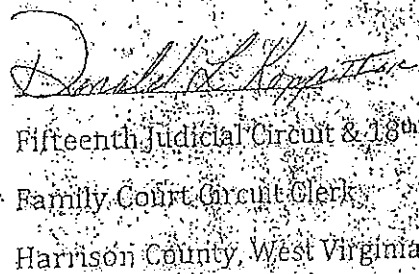 Donald L Kopp II
Fifteenth Judicial Circuit & 18th
Family Court Circuit Clerk
Harrison County, West Virginia